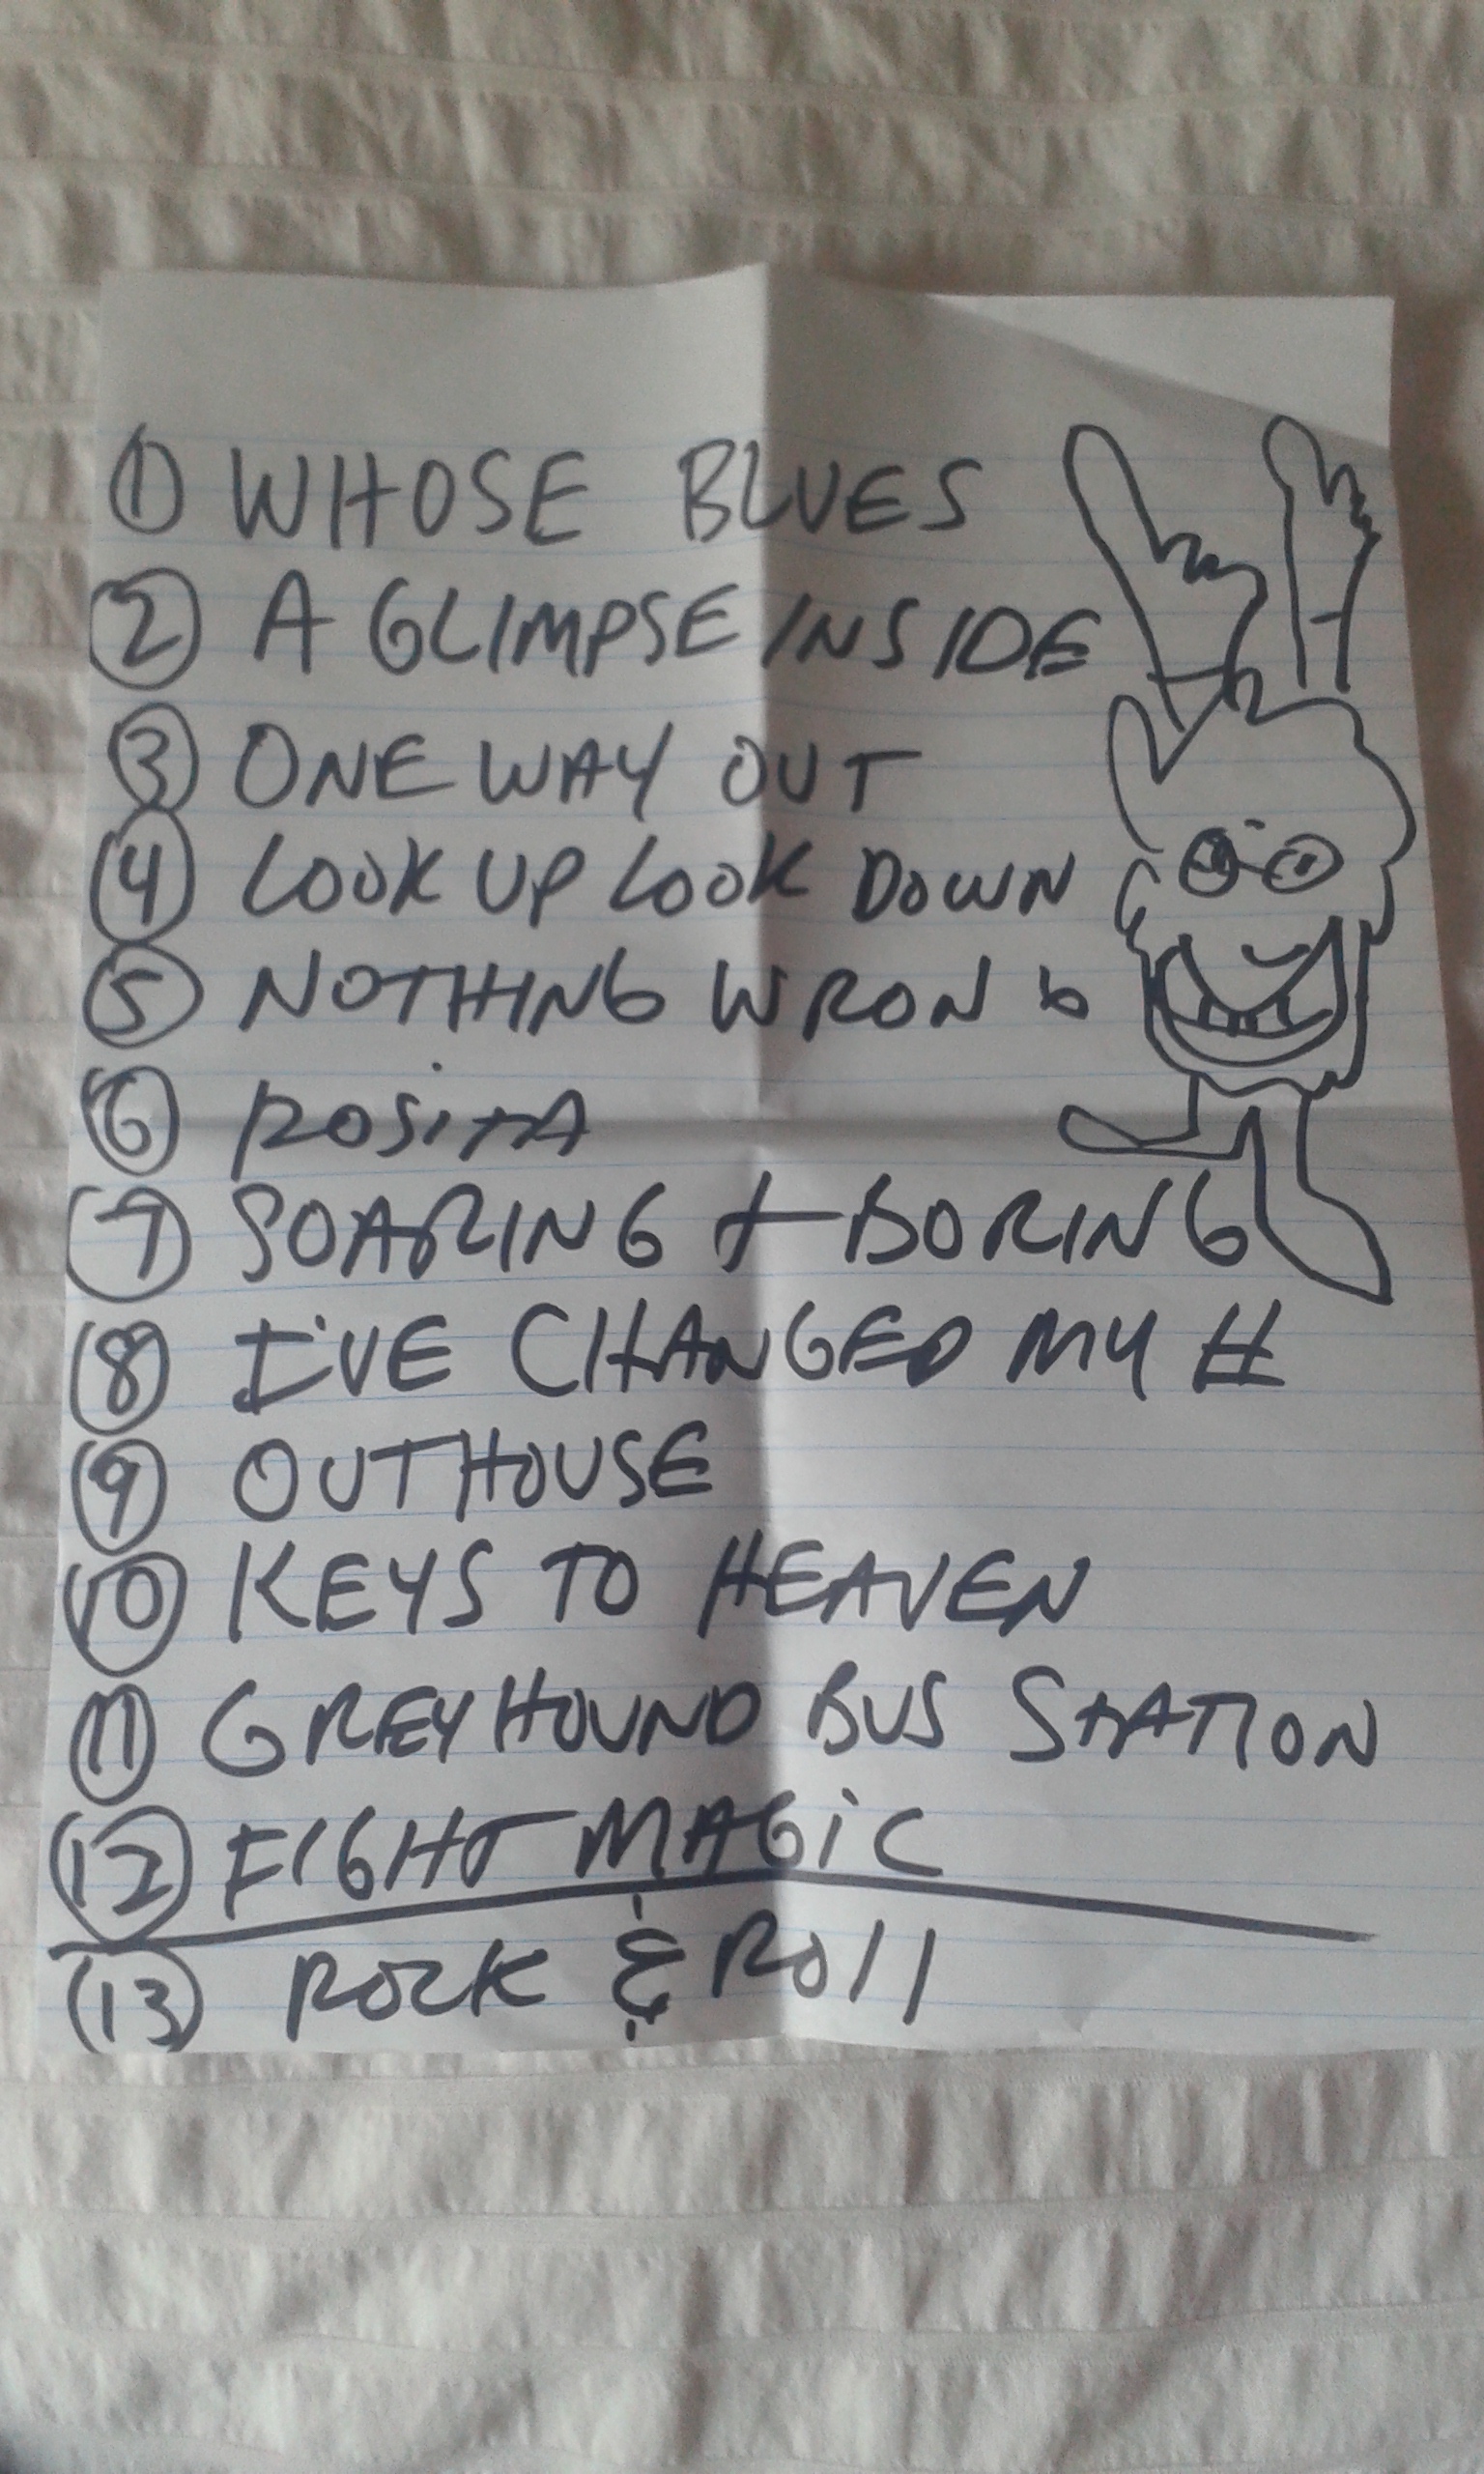 1 WHOSE BLUES
2 A GLIMPSE INSIDE
3 ONE WAY OUT
4 LOOK UP LOOK DOWN
5 NOTHING WRONG
6 ROSITA
7 SOARING + BORING
8 I'VE CHANGED MY #
9 OUTHOUSE
10 KEYS TO HEAVEN
11 GREYHOUND BUS STATION
12 FIGHT MAGIC
13 ROCK & ROLL